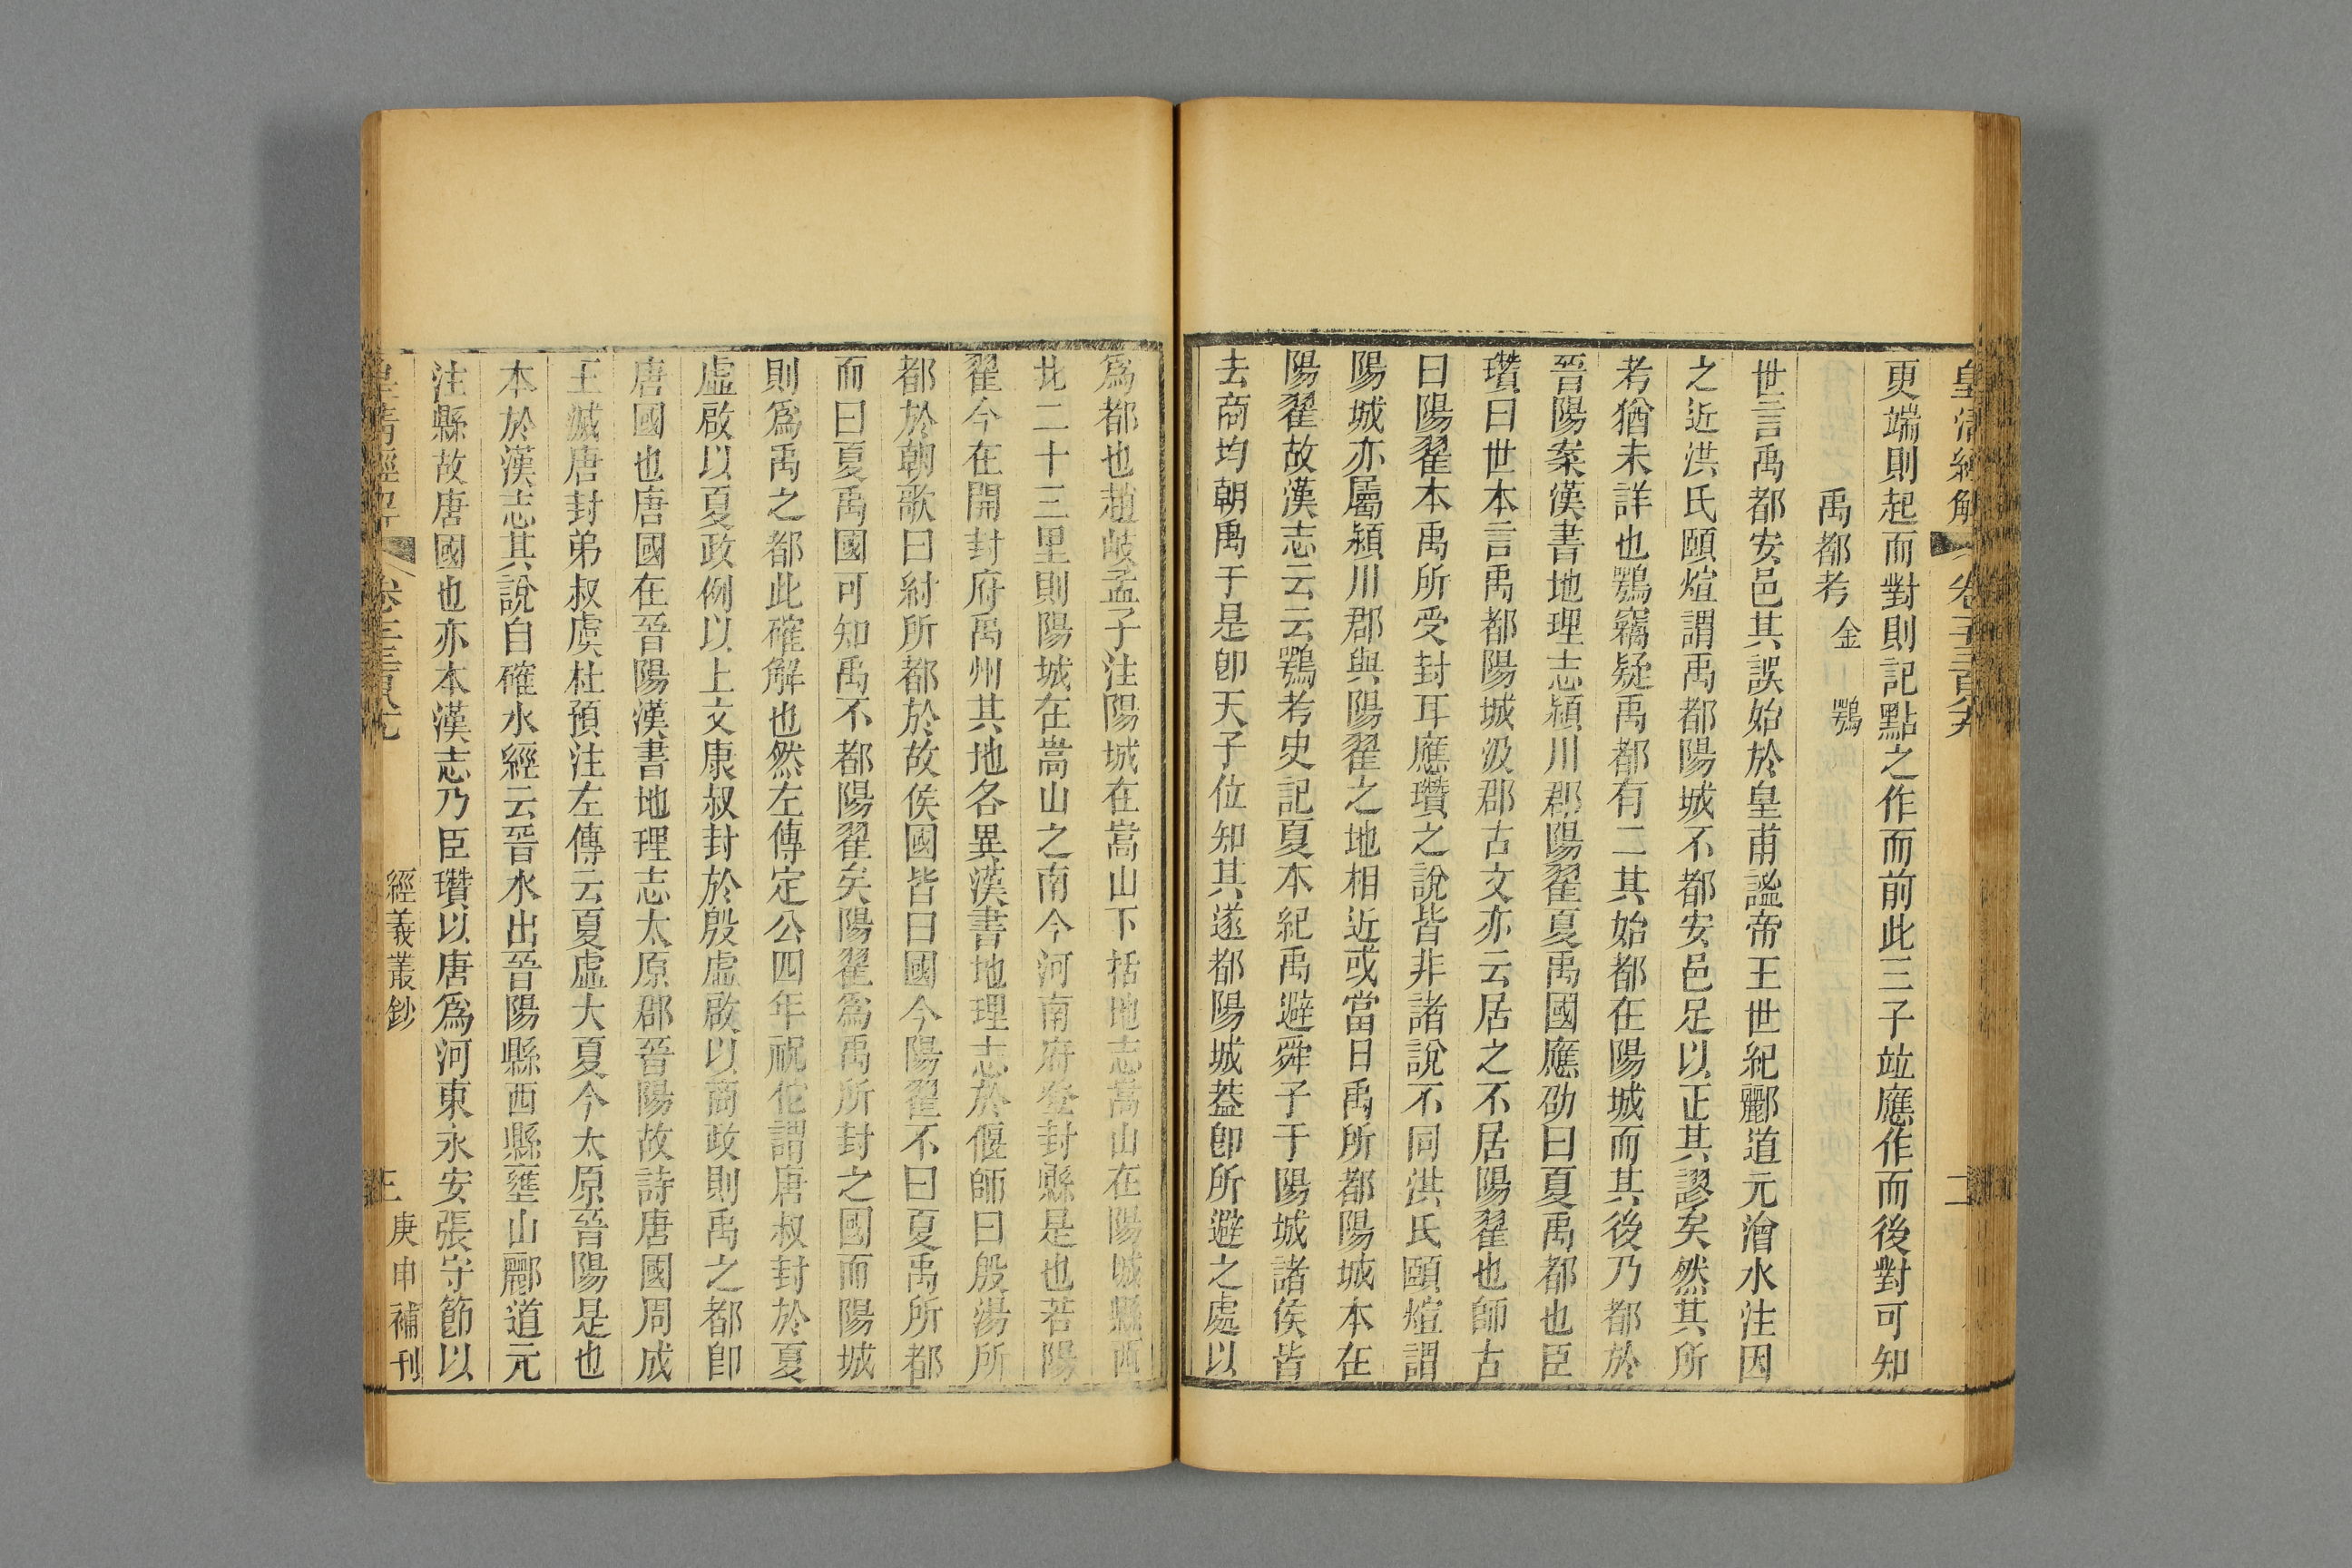 皇清經解 卷千三百八十九 二
更端則起而對則記點之作而前此三子竝應作而後對可知
禹都考 金鶚
世言禹都安邑其誤始於皇甫謐帝王世紀酈道元澮水注因
之近洪氏頤煊謂禹都陽城不都安邑足以正其謬矣然其所
考猶未詳也鶚竊疑禹都有二其始都在陽城而其後乃都於
晉陽案漢書地理志潁川郡陽翟夏禹國應劭曰夏禹都也臣
瓚曰世本言禹都陽城汲郡古文亦云居之不居陽翟也師古
曰陽翟本禹所受封耳應瓚之說皆非諸說不同洪氏頤煊謂
陽城亦屬潁川郡與陽翟之地相近或當日禹所都陽城本在
陽翟故漢志云云鶚考史記夏本紀禹避舜子于陽城諸侯皆
去商均朝禹于是卽天子位知其遂都陽城葢卽所避之處以
爲都也趙岐孟子注陽城在嵩山下括地志嵩山在陽城縣西
北二十三里則陽城在嵩山之南今河南府登封縣是也若陽
翟今在開封府禹州其地各異漢書地理志於偃師曰殷湯所
都於朝歌曰紂所都於故侯國皆曰國今陽翟不曰夏禹所都
而曰夏禹國可知禹不都陽翟矣陽翟爲禹所封之國而陽城
則爲禹之都此確解也然左傳定公四年祝佗謂唐叔封於夏
虛啟以夏政例以上文康叔封於殷虛啟以商政則禹之都卽
唐國也唐國在晉陽漢書地理志太原郡晉陽故詩唐國周成
王滅唐封弟叔虞杜預注左傳云夏虛大夏今太原晉陽是也
本於漢志其說自確水經云晉水出晉陽縣西縣壅山酈道元
注縣故唐國也亦本漢志乃臣瓚以唐爲河東永安張守節以
皇清經解 卷千三百八十九 經義叢鈔 三 庚申補刊